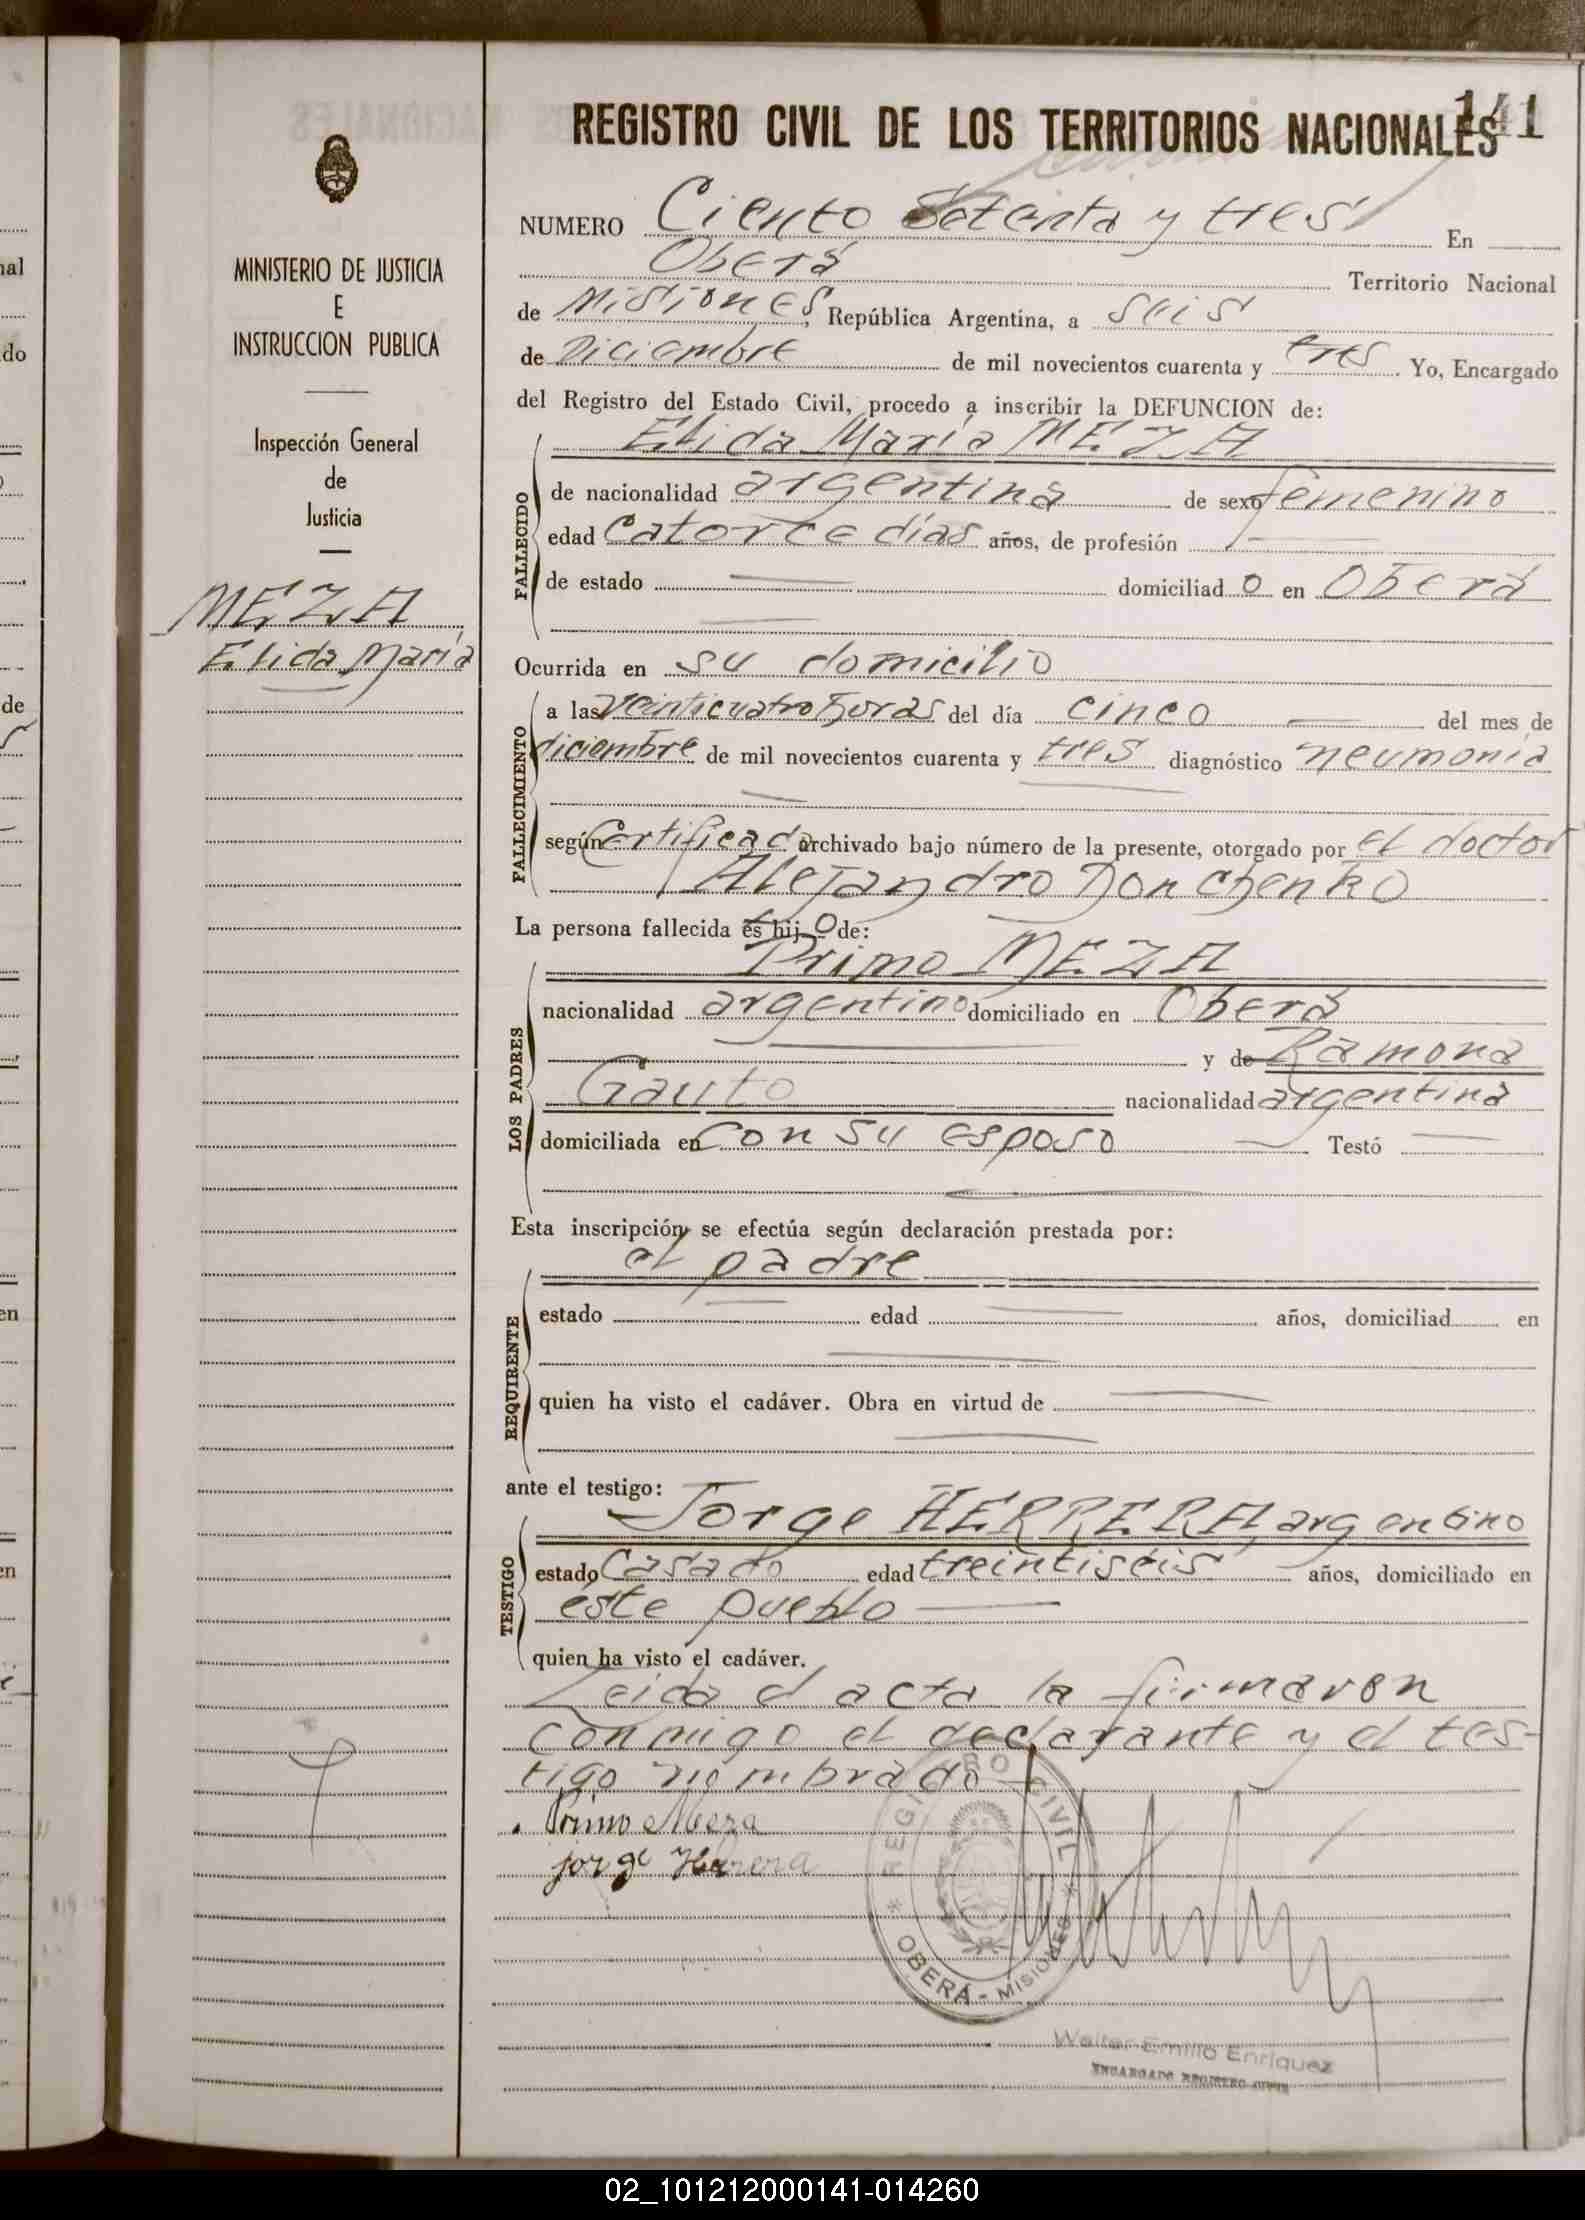 141
REGISTRO CIVIL DE LOS TERRITORIOS NACIONALES
MINISTERIO DE JUSTICIA
E
INSTRUCCION PUBLICA
Inspección General
de
Justicia
MEZA
Elida María
NUMERO Ciento Setenta y tres En
Oberá Territorio Nacional
de Misiones, República Argentina, a seis
de Diciembre de mil novecientos cuarenta y tres. Yo, Encargado
del Registro del Estado Civil, procedo a inscribir la DEFUNCION de:
Elida María MEZA
FALLECIDO
de nacionalidad argentina de sexo femenino
edad Catorce días años, de profesión
de estado domiciliad o en Oberá
Ocurrida en su domicilio
FALLECIMIENTO
a las Veinticuatro horas del día cinco del mes de
diciembre de mil novecientos cuarenta y tres diagnóstico neumonía
según Certificado archivado bajo número de la presente, otorgado por el doctor
Alejandro Donchenko
La persona fallecida es hij o de:
LOS PADRES
Primo MEZA
nacionalidad argentino domiciliado en Oberá
y de Ramona
Gauto nacionalidad argentina
domiciliada en Con su esposo Testó
Esta inscripción se efectúa según declaración prestada por:
REQUIRENTE
el padre
estado edad años, domiciliad en
quien ha visto el cadáver. Obra en virtud de
ante el testigo:
TESTIGO
Jorge HERRERA, argentino
estado Casado edad treintiséis años, domiciliado en
éste pueblo
quien ha visto el cadáver.
Leida el acta la firmaron
conmigo el declarante y el tes-
tigo nombrado
Primo Meza
jorge Herrera
REGISTRO CIVIL
OBERÁ - MISIONES
Walter Emilio Enriquez
ENCARGADO REGISTRO CIVIL
02_101212000141-014260